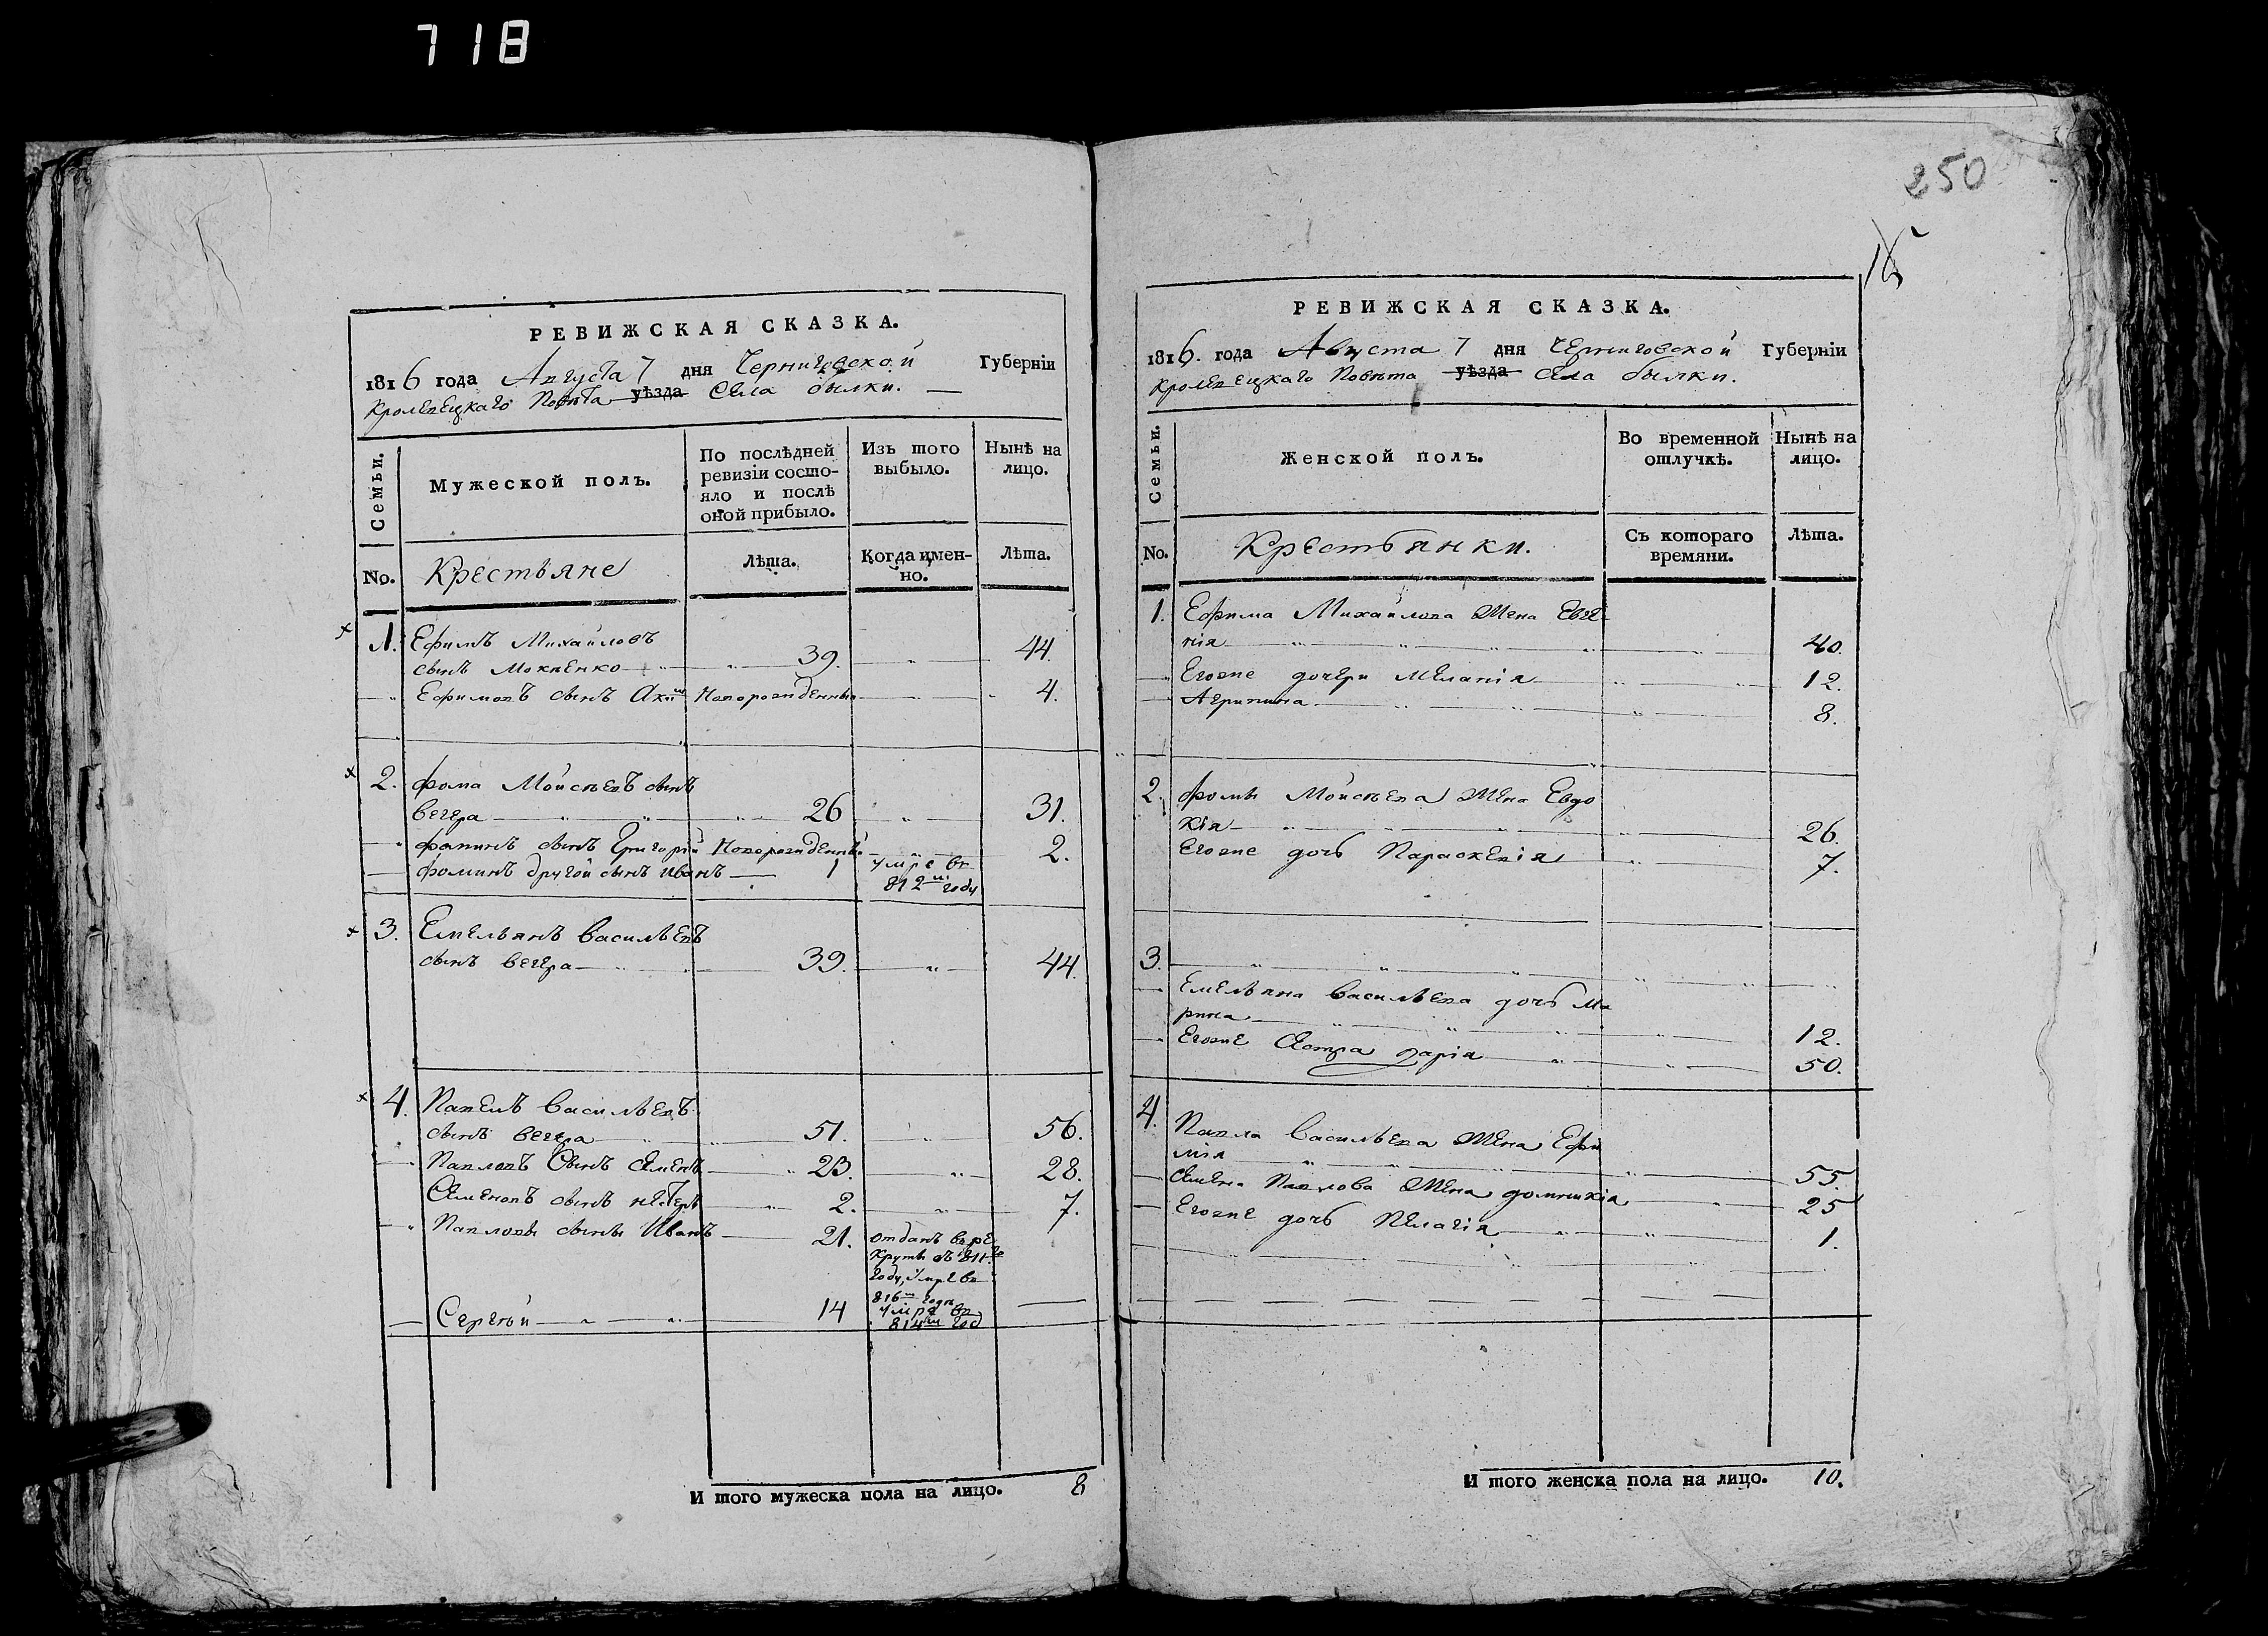 718
250
15
РЕВИЖСКАЯ СКАЗКА.
1816 года Августа 7 дня Черниговской Губерніи
Кролевецкаго Повѣта уѣзда Села былки.
Семьи.
Мужеской полъ.
По послѣдней ревизіи состояло и послѣ оной прибыло.
Изъ того выбыло.
Нынѣ на лицо.
No.
Крестьяне
Лѣта.
Когда имен-
но.
Лѣта.
1. Ефимъ Михайловъ
сынъ Мокиенко 39. 44.
Ефимовъ сынъ Аким Новорожденный 4.
2. фома Мойсѣевъ сынъ
вечера 26 31.
фоминъ сынъ Григорій Новорожденный 2.
фоминъ другой сынъ Иванъ 1 умре въ
812м году
3. Емельянъ васильевъ
сынъ вечера 39. 44.
4. Павелъ васильевъ
сынъ вечера 51. 56.
Павловъ Сынъ Семенъ 23. 28.
Семеновъ сынъ нестеръ 2. 7.
Павловы сыны Иванъ 21. отданъ в ре
круты въ 811го
году, умре въ
816м годѣ
Сергѣй 14 умре въ
814м год
И того мужеска пола на лицо. 8
РЕВИЖСКАЯ СКАЗКА.
1816. года Августа 7 дня Черниговской Губерніи
Кролевецкаго Повѣта уѣзда Села былки.
Семьи.
Женской полъ.
Во временной
отлучкѣ.
Нынѣ на
лицо.
No.
Крестьянки.
Съ котораго
времяни.
Лѣта.
1. Ефима Михайлова Жена Евге
нія 40.
Егоже дочери Меланія 12.
Агрипина 8.
2. фомы Мойсѣева Жена Евдо
кія 26.
Егоже дочь Параскевія 7.
3.
Емельяна васильева дочь Ма
рина 12.
Егоже Сестра дарія 50.
4. Павла васильева Жена Ефи
мія 55.
Семена Павлова Жена домникія 25
Егоже дочь Пелагія 1.
И того женска пола на лицо. 10.